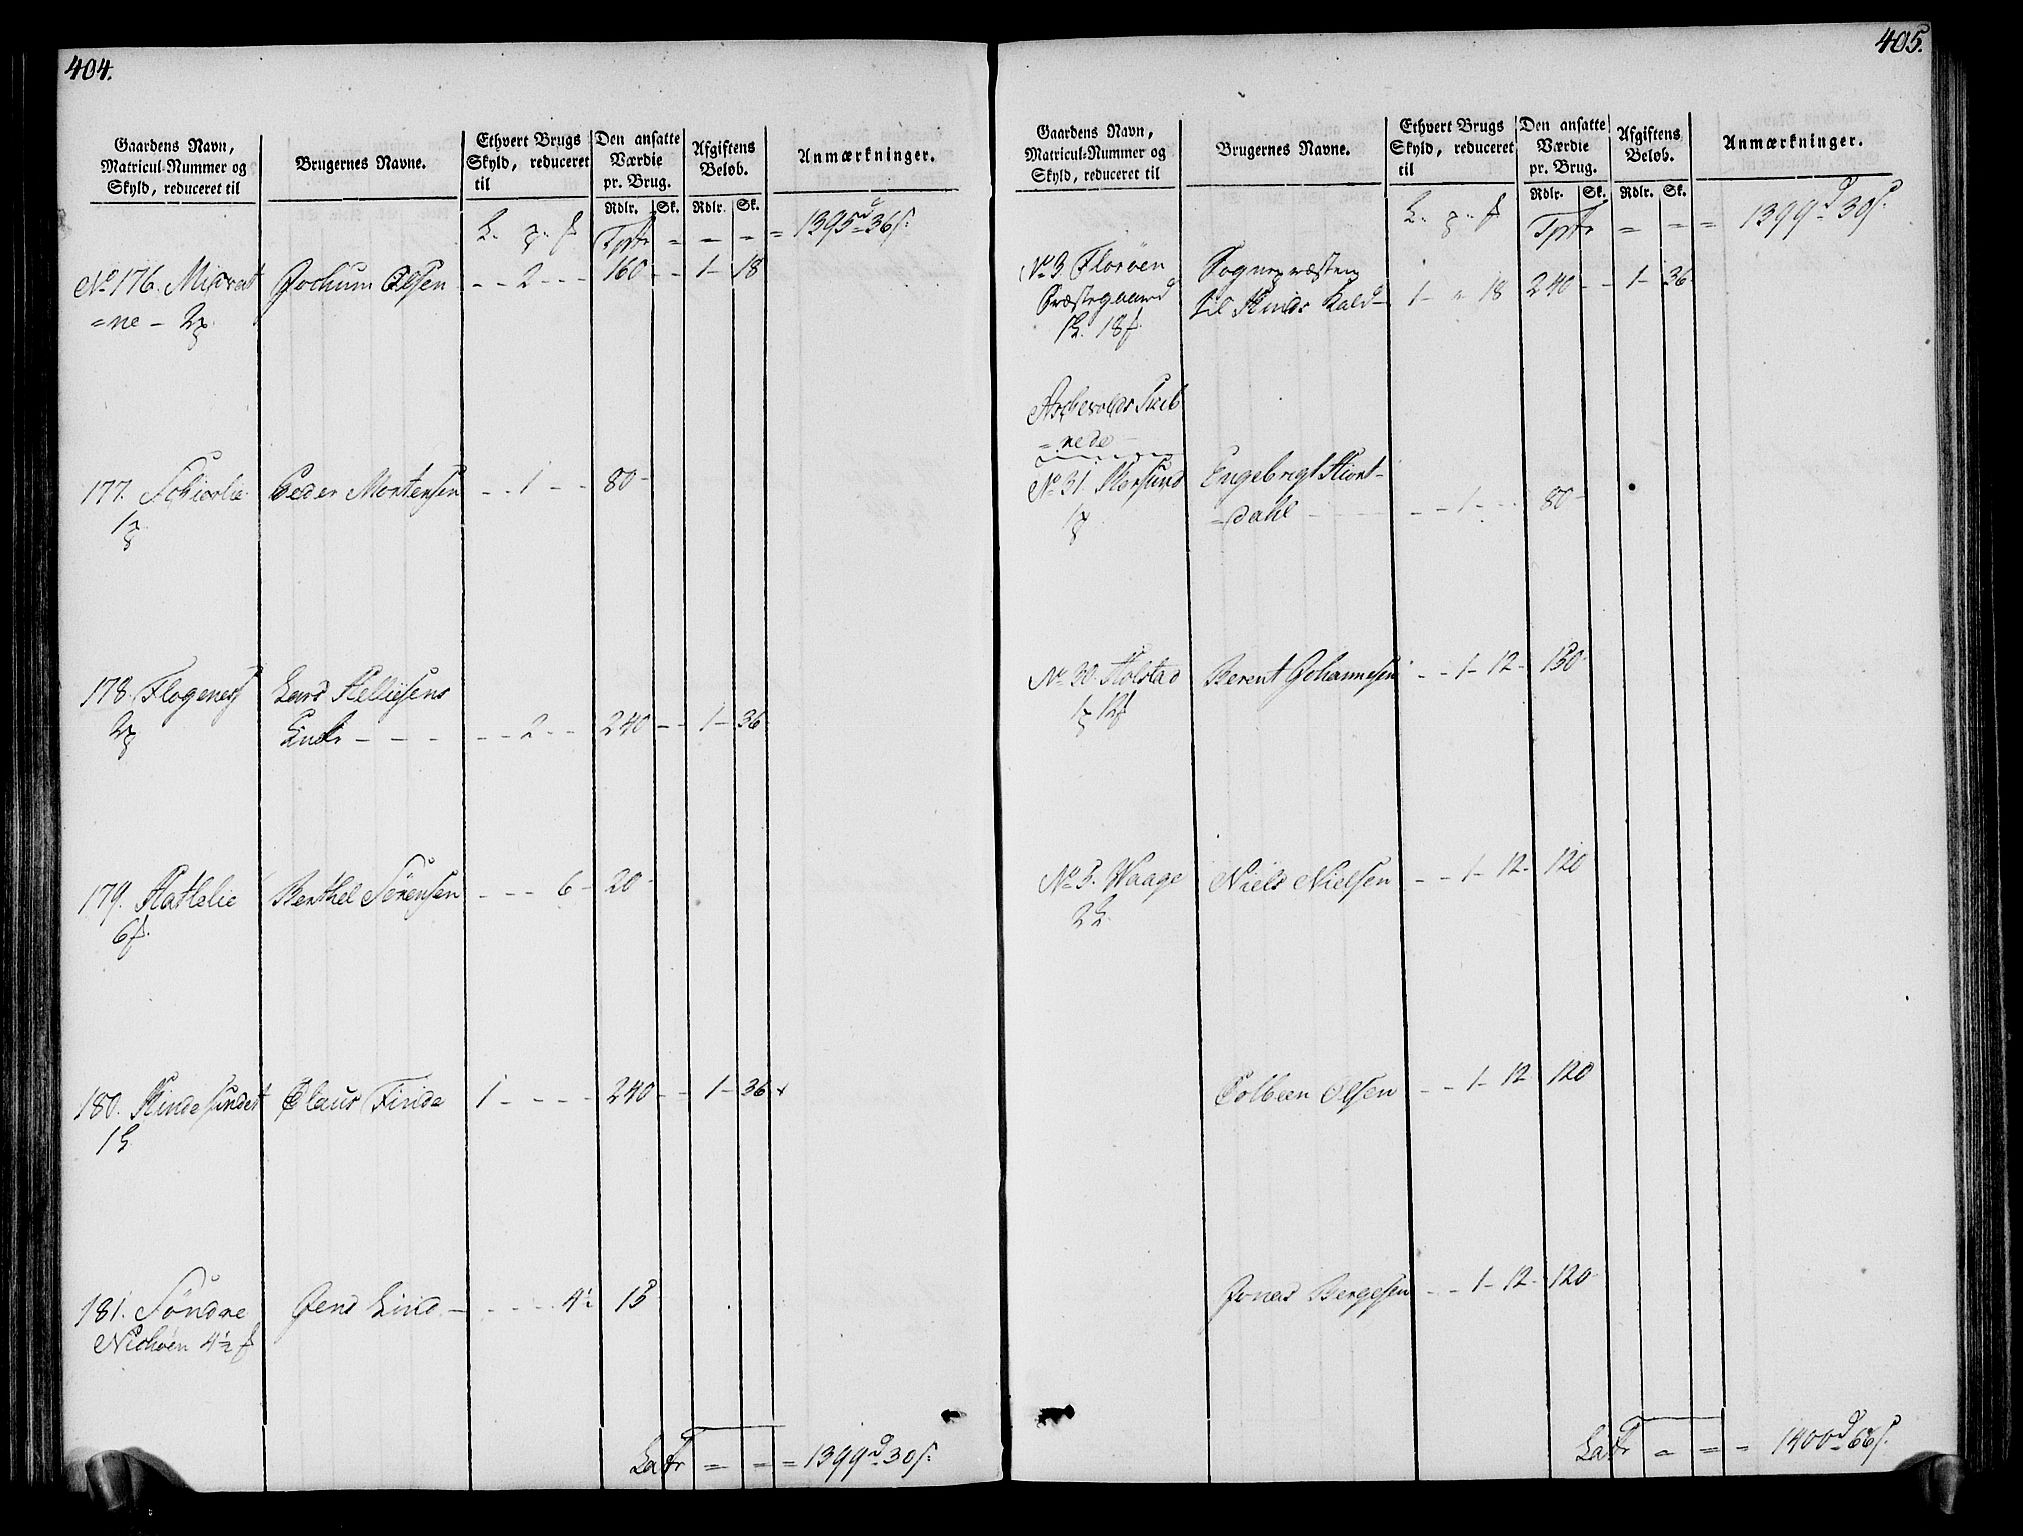 404.
Gaardens Navn,
Matricul-Nummer og
Skyld, reduceret til
Brugernes Navne.
Ethvert Brugs
Skyld, reduceret
til
Den ansatte
Værdie
pr. Brug.
Afgiftens
Beløb.
Anmærkninger.
Rdlr. Sk. Rdlr. Sk.
Tpfr = - - = 1395d 36s.
No 176. Jochum Olsen - - 2 - - 160 - - 1 - 18
=ne - 2
177. Peder Mortensen - - 1 - - 80 -
1
178. Flogenes Lars Helliesens
2 Enke - - - - - 2 - - 240 - - 1 - 36
179. Hatlelie Berthel Sörensen - - - 6 - 20 -
6
180. Kindesundet Claus Finde 1 - - - - 240 - - 1 - 36
1
181. Söndre Jens Lind - - - - 4½ 15
4½
Latr = = = 1399d 30s.
405.
Gaardens Navn,
Matricul-Nummer og
Skyld, reduceret til
Brugernes Navne.
Ethvert Brugs
Skyld, reduceret
til
Den ansatte
Værdie
pr. Brug.
Afgiftens
Beløb.
Anmærkninger.
Rdlr. Sk. Rdlr. Sk.
Tpfr = = = 1399d 30s.
No 3. Floröen Sognepræsten
Præstegaard til Kinds Kald - 1 - " 18 240 - - 1 - 36
1 18
Askevolds Skib
=rede -
No 31. Engebrigt Hiort-
1 =dahl - - - - 1 - - 80 -
No 30. Holstad Berent Johannesen - - 1 - 12 - 150 -
1 12
No 5. Waage Niels Nielsen - - 1 - 12 - 120
2
Colbeen Olsen - - 1 - 12 120
Jonas Bergesen - - 1 - 12 - 120 -
Latr = = = 1400d 66s.